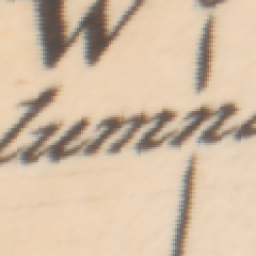 W
lumni